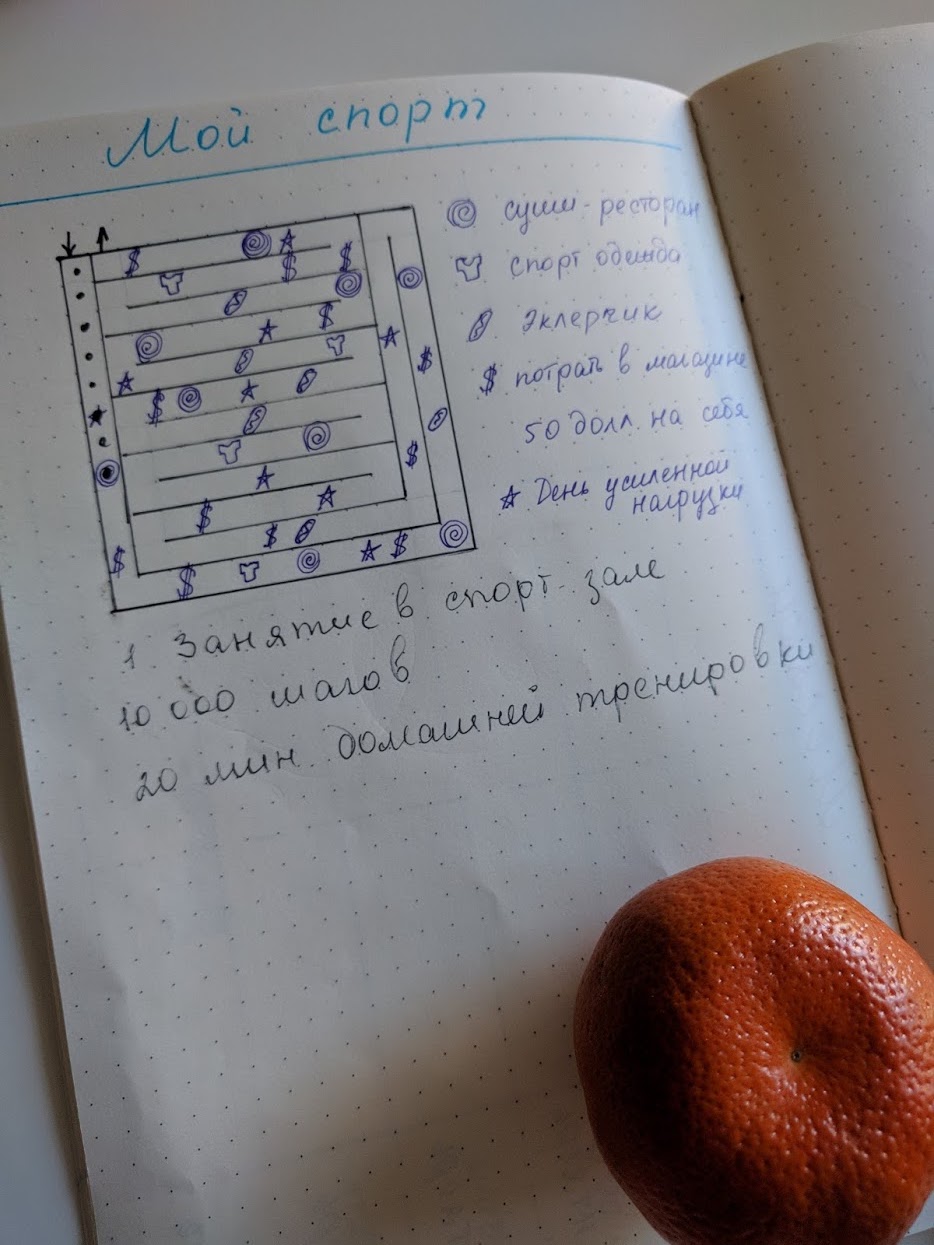 Мой спорт
суши-ресторан
спорт одежда
эклерчик
$ потрать в магазине
50 долл. на себя
День усиленной
нагрузки
1 занятие в спорт-зале
10 000 шагов
20 мин. домашней тренировки